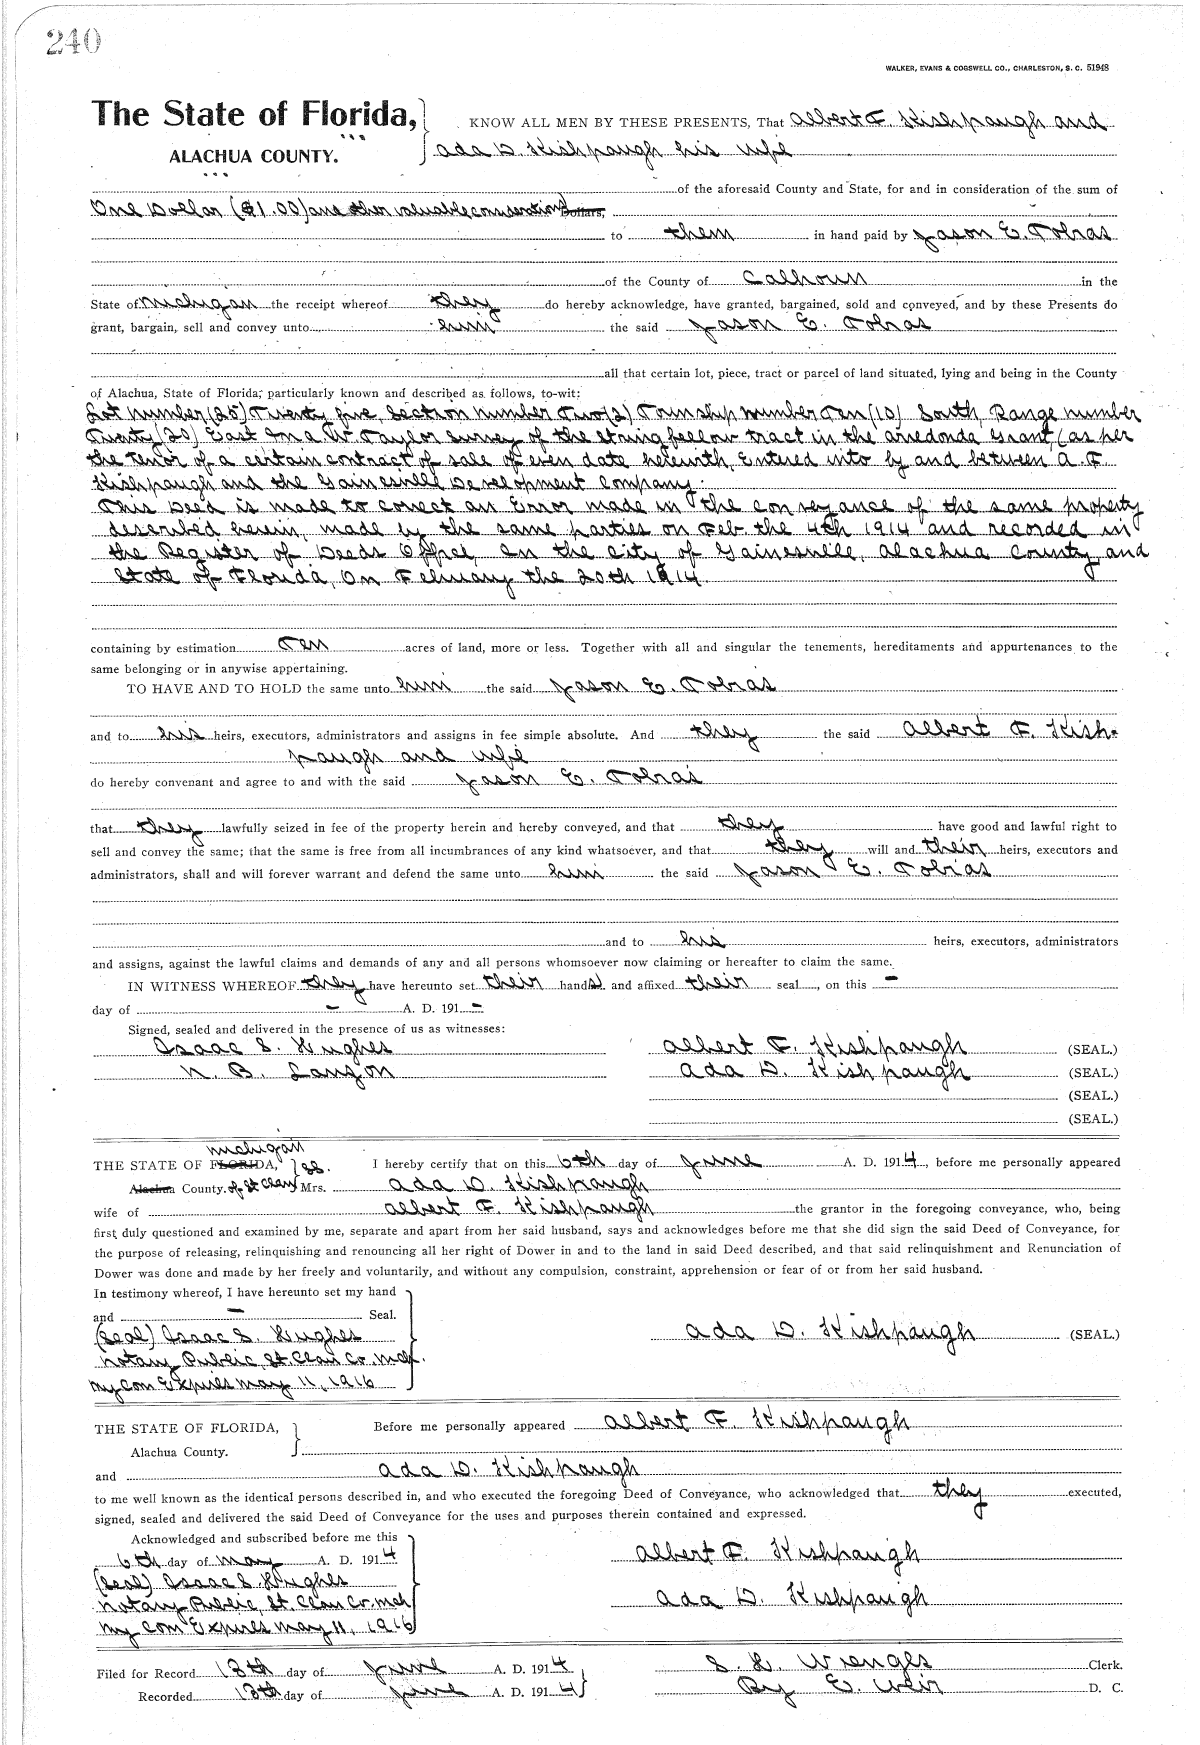 240
WALKER, EVANS & COGSWELL CO., CHARLESTON, S. C. 51948
The State of Florida,
ALACHUA COUNTY.
KNOW ALL MEN BY THESE PRESENTS, That Albert F. Kishpaugh and
Ada D. Kishpaugh his wife
of the aforesaid County and State, for and in consideration of the sum of
One Dollar ($1.00) and other valuable considerations Dollars,
to them in hand paid by Jason E. Tobias
of the County of Calhoun in the
State of Michigan the receipt whereof they do hereby acknowledge, have granted, bargained, sold and conveyed, and by these Presents do
grant, bargain, sell and convey unto him the said Jason E. Tobias
all that certain lot, piece, tract or parcel of land situated, lying and being in the County
of Alachua, State of Florida, particularly known and described as follows, to-wit:
Lot number (25) Twenty five, Section number Two (2) Township number Ten (10) South, Range number
Twenty (20) East on a W. Taylor survey of the stringfellow tract in the arredonda Grant (as per
the tenor of a certain contract of sale of even date herewith, Entered into by and between A. F.
Kishpaugh and the Gainesville Development Company.
This Deed is made to correct an Error made in the conveyance of the same property
described herein, made by the same parties on Feb. the 4th 1914 and recorded in
the Register of Deeds Office, in the City of Gainesville, Alachua County and
State of Florida, On February the 20th 1914.
containing by estimation Ten acres of land, more or less. Together with all and singular the tenements, hereditaments and appurtenances to the
same belonging or in anywise appertaining.
TO HAVE AND TO HOLD the same unto him the said Jason E. Tobias
and to his heirs, executors, administrators and assigns in fee simple absolute. And they the said Albert F. Kish-
paugh and wife
do hereby convenant and agree to and with the said Jason E. Tobias
that they lawfully seized in fee of the property herein and hereby conveyed, and that they have good and lawful right to
sell and convey the same; that the same is free from all incumbrances of any kind whatsoever, and that they will and their heirs, executors and
administrators, shall and will forever warrant and defend the same unto him the said Jason E. Tobias
and to his heirs, executors, administrators
and assigns, against the lawful claims and demands of any and all persons whomsoever now claiming or hereafter to claim the same.
IN WITNESS WHEREOF they have hereunto set their hands and affixed their seal, on this -
day of - A. D. 191 -
Signed, sealed and delivered in the presence of us as witnesses:
Isaac S. Hughes Albert F. Kishpaugh (SEAL.)
N. B. Ada D. Kishpaugh (SEAL.)
(SEAL.)
(SEAL.)
Michigan
THE STATE OF FLORIDA, } ss. I hereby certify that on this 6th day of June A. D. 1914, before me personally appeared
Alachua County. of St Clair Mrs. Ada D. Kishpaugh
wife of Albert F. Kishpaugh the grantor in the foregoing conveyance, who, being
first duly questioned and examined by me, separate and apart from her said husband, says and acknowledges before me that she did sign the said Deed of Conveyance, for
the purpose of releasing, relinquishing and renouncing all her right of Dower in and to the land in said Deed described, and that said relinquishment and Renunciation of
Dower was done and made by her freely and voluntarily, and without any compulsion, constraint, apprehension or fear of or from her said husband.
In testimony whereof, I have hereunto set my hand
and - Seal.
(Seal) Isaac S. Hughes Ada D. Kishpaugh (SEAL.)
Notary Public, St. Clair Co. Mch.
My Com Expires May 11, 1916
THE STATE OF FLORIDA, Before me personally appeared Albert F. Kishpaugh
Alachua County.
and Ada D. Kishpaugh
to me well known as the identical persons described in, and who executed the foregoing Deed of Conveyance, who acknowledged that they executed,
signed, sealed and delivered the said Deed of Conveyance for the uses and purposes therein contained and expressed.
Acknowledged and subscribed before me this
6th day of May A. D. 1914 Albert F. Kishpaugh
(Seal) Isaac S Hughes
Notary Public, St. Clair Co. Mch Ada D. Kishpaugh
My Com Expires May 11, 1916
Filed for Record 18th day of June A. D. 1914 S. H. Wienges Clerk.
Recorded 18th day of June A. D. 1914 By E. Weir D. C.